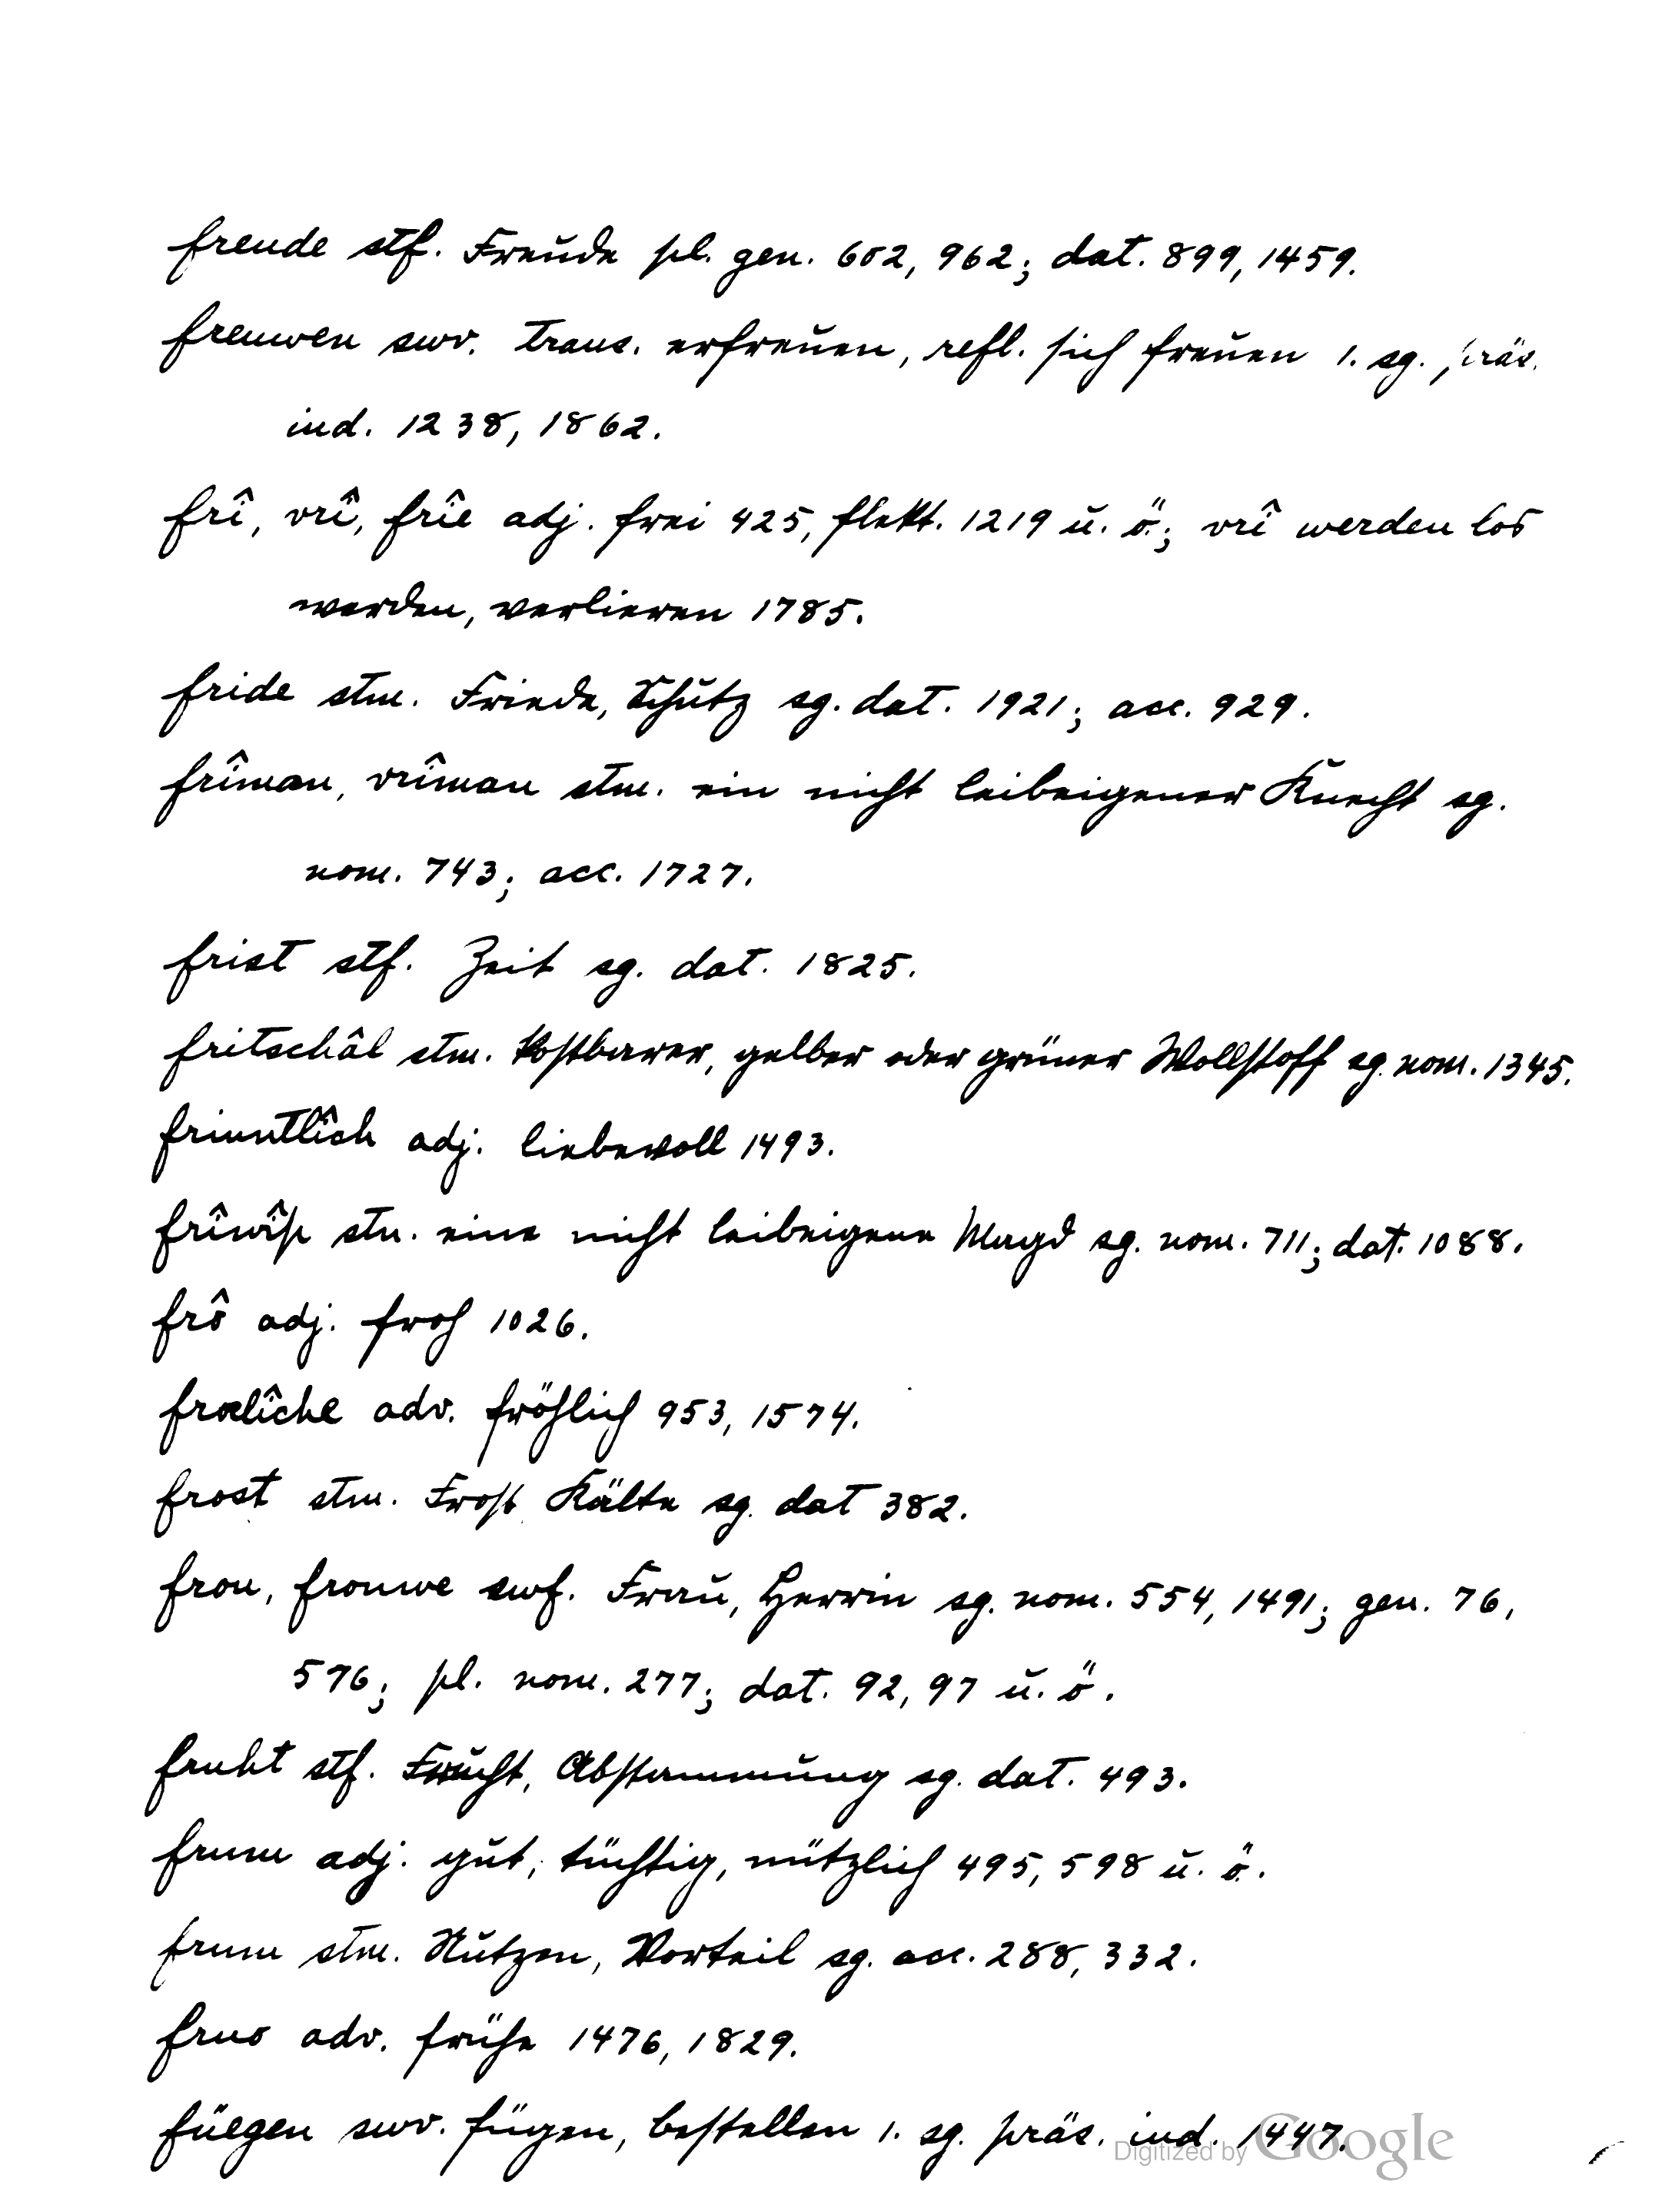 freude stf. Freude pl. gen. 602, 962; dat. 899, 1459.
freuwen swv. trans. erfreuen, refl. sich freuen 1. sg. präs.
ind. 1238, 1862.
frî, vrî, frîe adj. frei 425, flekt. 1219 u. ö.; vrî werden los
werden, verlieren 1785.
fride stm. Friede, Schutz sg. dat. 1921; acc. 929.
frîman, vrîman stm. ein nicht leibeigener Knecht sg.
nom. 743; acc. 1727.
frist stf. Zeit sg. dat. 1825.
fritschâl stm. kostbarer, gelber oder grüner Wollstoff sg. nom. 1345.
friuntlîch adj. liebevoll 1493.
frîwîp stn. eine nicht leibeigene Magd sg. nom. 711; dat. 1088.
frô adj. froh 1026.
frœlîche adv. fröhlich 953, 1574.
frost stm. Frost, Kälte sg. dat 382.
frou, frouwe swf. Frau, Herrin sg. nom. 554, 1491; gen. 76,
576; pl. nom. 277; dat. 92, 97 u. ö.
fruht stf. Frucht, Abstammung sg. dat. 493.
frum adj. gut, tüchtig, nützlich 495, 598 u. ö.
frum stm. Nutzen, Vorteil sg. acc. 288, 332.
fruo adv. frühe 1476, 1829.
füegen swv. fügen, bestellen 1. sg. präs. ind. 1447.
Digitized by Google